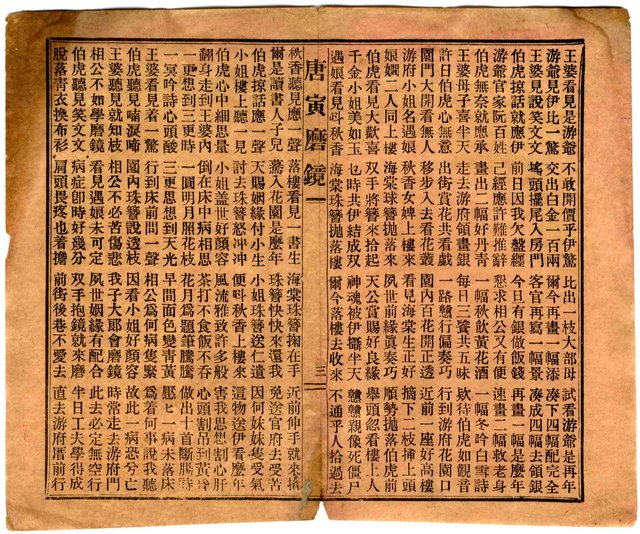 王婆看見是游爺 不敢開價乎伊驚 比出一枝大部母 試看游爺是再年
游爺見伊比一驚 交出白金一百兩 今再畫一幅添 湊下四幅配完全
王婆見說笑文文 搖頭擺尾入房門 客官再寫一幅景 湊成四幅去領銀
伯虎掠話就應伊 前日因我欠盤經 今旦有銀做飯錢 再畫一幅是麼年
游爺官家阮百姓 己經應許難推辭 懇求相公又有便 速畫二幅收老身
伯虎無奈就應承 畫出二幅好丹青 一幅秋飲黃花酒 一幅冬吟白雪詩
王婆母子喜半天 走去游府領畫銀 每日三餐共五味 欵待伯虎如觀音
許日伯虎心無意 出街賞花共看戲 一路贛行偏奏巧 行到游府花園口
園門大開看無人 移步入去看花叢 園内百花開正透 近前一座好高樓
游府小姐名遇娘 秋香女婢上樓來 看見海棠生正好 摘下二枝挿上頭
娘嫺二人同上樓 海棠珠簪拋落來 夙世前緣眞奏巧 順勢拋落伯虎前
伯虎看見大歡喜 双手將簪來拾起 天公賞賜好良緣 舉頭紹看樓上人
千金小姐美如玉 乜時共伊結成双 神魂被伊攝半天 贛贛親像死僵尸
遇娘看見呌秋香 海棠珠簪拋落樓 爾今落樓去收來 不通乎人拾過去
唐寅磨鏡 三
秋香聽見應一聲 落樓看見一書生 海棠珠簪掬在手 近前伸手就來搶
爾是讀書人子兒 驀入花園是麼年 珠簪快快來還我 免送官府去受苦
伯虎掠話應一聲 天賜姻緣付小生 小姐珠簪送仁遺 因何妹妹隻受氣
小姐樓上聽一見 討去珠簪怒冲冲 便呌秋香上樓來 這物送伊看麼年
伯虎心中細思量 小姐盖世好顔容 風流雅致許多般 害我思想割心肝
翻身走到王婆内 倒在床中病相思 茶打不食飯不吞 心頭割吊到黃昏
一更想到三更時 一圓明月照花枝 花月為題筆騰騰 做出十首斷腸詩
一冥吟詩心頭酸 三更思想到天光 早間面色變青黃 懕匕一病未落床
王婆看見着一驚 行到床前問一聲 相公為何病隻緊 為着何事說我聽
伯虎聽見喃淚啼 海棠珠簪說透枝 因看小姐好顔容 故此一病恐兮亡
王婆聽見就知枝 相公不必苦傷悲 我子大耶會磨鏡 時常走去游府門
相公不如學磨鏡 看見遇娘未可定 夙世姻緣有配合 此去必定無空行
伯虎聽見笑文文 病症卽時好幾分 双手抱鏡就來磨 半日工夫學得成
脫落青衣換布彩 肩頭畏疼也着擔 前街後巷不愛去 直去游府厝前行